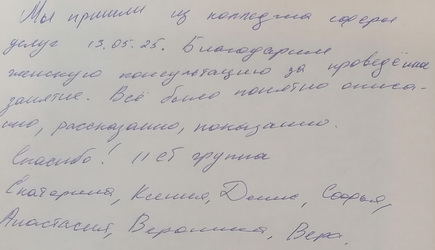 Мы пришли из колледжа сферы
услуг 13.05.25. Благодарим
женскую консультацию за проведённое
занятие. Всё было понятно описа-
но, рассказано, показано.
Спасибо! 11 СТ группа
Екатерина, Ксения, Денис, Софья,
Анастасия, Вероника, Вера